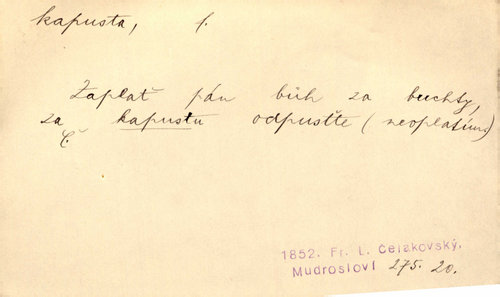 kapusta, f.
Zaplať pán bůh za buchty,
za kapustu odpusťte (neoplatíme)
Č.
1852. Fr. L. Čelakovský,
Mudrosloví 275. 20.